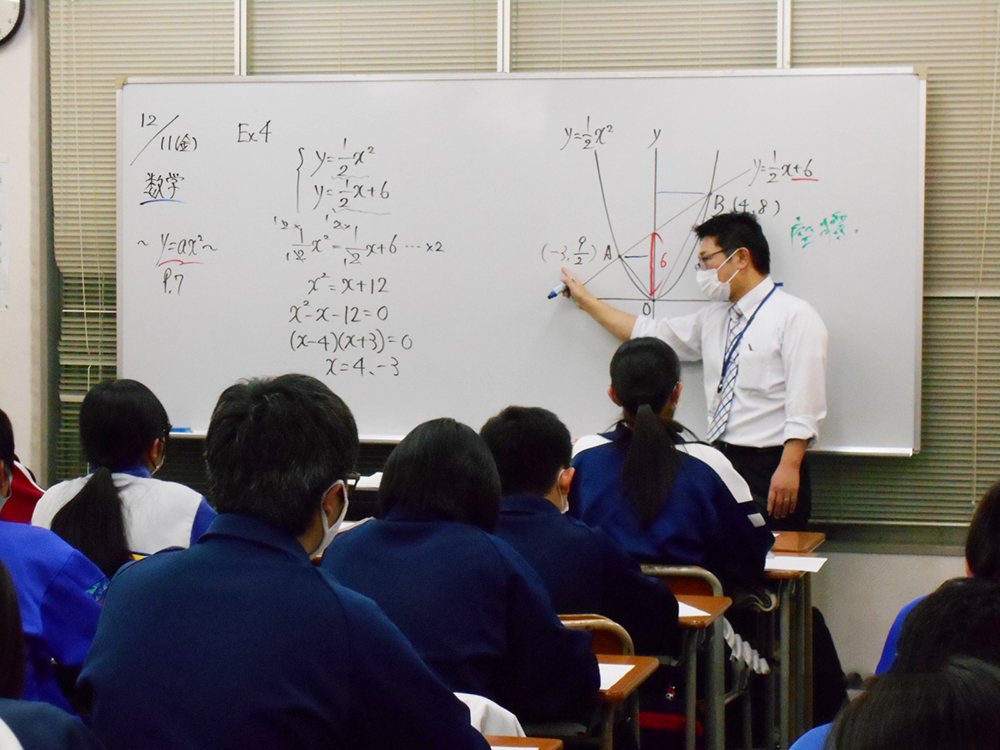 12/11(金)
数学
~y=ax²~
P.7
Ex4
y=1/2x²
y=1/2x+6
1/2x²=1/2x+6…×2
x²=x+12
x²-x-12=0
(x-4)(x+3)=0
x=4、-3
y=1/2x²
y
y=1/2x+6
B(4,8)
(-3,9/2)A
6
O